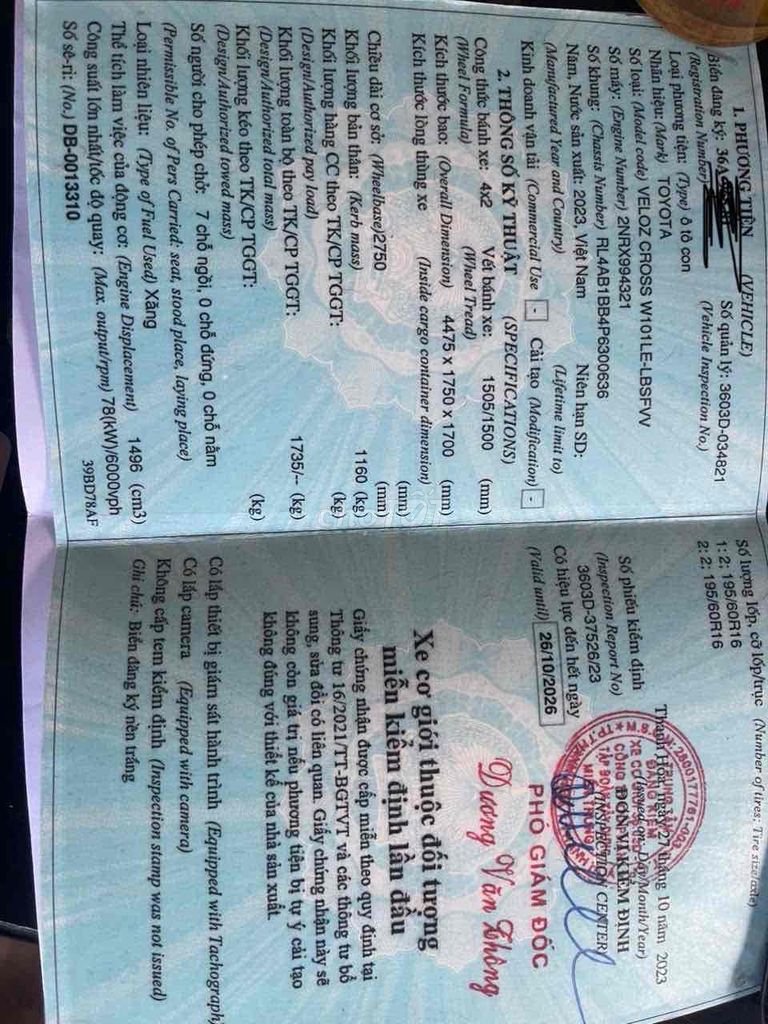 1. PHƯƠNG TIỆN (VEHICLE)
Biển đăng ký: 36A
(Registration Number)
Số quản lý: 3603D-034821
(Vehicle Inspection No.)
Loại phương tiện: (Type) ô tô con
Nhãn hiệu: (Mark) TOYOTA
Số loại: (Model code) VELOZ CROSS W101LE-LBSFVV
Số máy: (Engine Number) 2NRX994321
Số khung: (Chassis Number) RL4AB1BB4P6300636
Năm, Nước sản xuất: 2023, Việt Nam Niên hạn SD:
(Manufactured Year and Country) (Lifetime limit to)
Kinh doanh vận tải (Commercial Use) - Cải tạo (Modification) -
2. THÔNG SỐ KỸ THUẬT (SPECIFICATIONS)
Công thức bánh xe: 4x2 Vết bánh xe: 1505/1500 (mm)
(Wheel Formula) (Wheel Tread)
Kích thước bao: (Overall Dimension) 4475 x 1750 x 1700 (mm)
Kích thước lòng thùng xe (Inside cargo container dimension)
(mm)
Chiều dài cơ sở: (Wheelbase)2750 (mm)
Khối lượng bản thân: (Kerb mass) 1160 (kg)
Khối lượng hàng CC theo TK/CP TGGT: (kg)
(Design/Authorized pay load)
Khối lượng toàn bộ theo TK/CP TGGT: 1735/-- (kg)
(Design/Authorized total mass)
Khối lượng kéo theo TK/CP TGGT: (kg)
(Design/Authorized towed mass)
Số người cho phép chở: 7 chỗ ngồi, 0 chỗ đứng, 0 chỗ nằm
(Permissible No. of Pers Carried: seat, stood place, laying place)
Loại nhiên liệu: (Type of Fuel Used) Xăng
Thể tích làm việc của động cơ: (Engine Displacement) 1496 (cm3)
Công suất lớn nhất/tốc độ quay: (Max. output/rpm) 78(kW)/6000vph
Số sê-ri: (No.) DB-0013310 39BD78AF
Số lượng lốp, cỡ lốp/trục (Number of tires: Tire size/axle)
1: 2; 195/60R16
2: 2; 195/60R16
Thanh Hóa, ngày 27 tháng 10 năm 2023
(Issued on: Day/Month/Year)
Số phiếu kiểm định
ĐƠN VỊ KIỂM ĐỊNH
(Inspection Report No)
(INSPECTION CENTER)
3603D-37526/23
Có hiệu lực đến hết ngày
(Valid until) 26/10/2026
PHÓ GIÁM ĐỐC
Dương Văn Thông
Xe cơ giới thuộc đối tượng
miễn kiểm định lần đầu
Giấy chứng nhận được cấp miễn theo quy định tại
Thông tư 16/2021/TT-BGTVT và các thông tư bổ
sung, sửa đổi có liên quan. Giấy chứng nhận này sẽ
không còn giá trị nếu phương tiện bị tự ý cải tạo
không đúng với thiết kế của nhà sản xuất.
Có lắp thiết bị giám sát hành trình (Equipped with Tachograph)
Có lắp camera (Equipped with camera)
Không cấp tem kiểm định (Inspection stamp was not issued)
Ghi chú: Biển đăng ký nền trắng